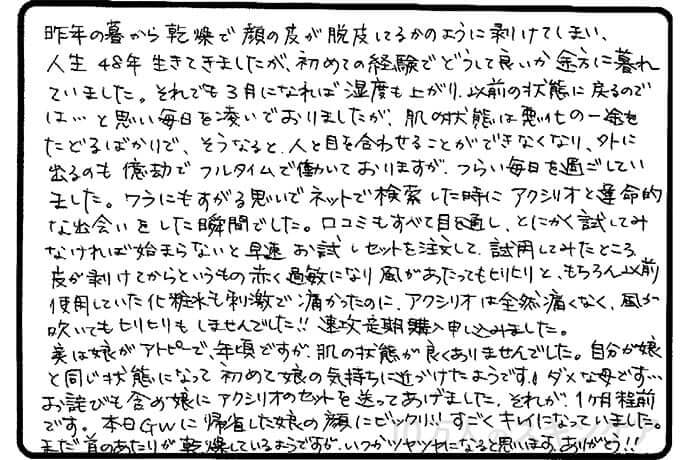 昨年の暮から乾燥で顔の皮が脱皮してるかのように剥けてしまい、
人生48年生きてきましたが、初めての経験でどうして良いか途方に暮れ
ていました。それでも3月になれば湿度も上がり、以前の状態に戻るので
は…と思い毎日を凌いでおりましたが、肌の状態は悪化の一途を
たどるばかりで、そうなると、人と目を合わせることができなくなり、外に
出るのも億劫でフルタイムで働いておりますが、つらい毎日を過ごしてい
ました。ワラにもすがる思いでネットで検索した時にアクシリオと運命的
な出会いをした瞬間でした。口コミもすべて目を通し、とにかく試してみ
なければ始まらないと早速お試しセットを注文して、試用してみたところ、
皮が剥けてからというもの赤く過敏になり風があたってもヒリヒリと、もちろん以前
使用していた化粧水も刺激で痛かったのに、アクシリオは全然痛くなく、風が
吹いてもヒリヒリもしませんでした!! 速攻定期購入申し込みました。
実は娘がアトピーで、年頃ですが、肌の状態が良くありませんでした。自分が娘
と同じ状態になって初めて娘の気持ちに近づけたようです。ダメな母です…
お詫びも含め娘にアクシリオのセットを送ってあげました。それが、1ヶ月程前
です。本日GWに帰省した娘の顔にビックリ!! すごくキレイになっていました。
まだ首のあたりが乾燥しているようですが、いつかツヤツヤになると思います。ありがとう!!